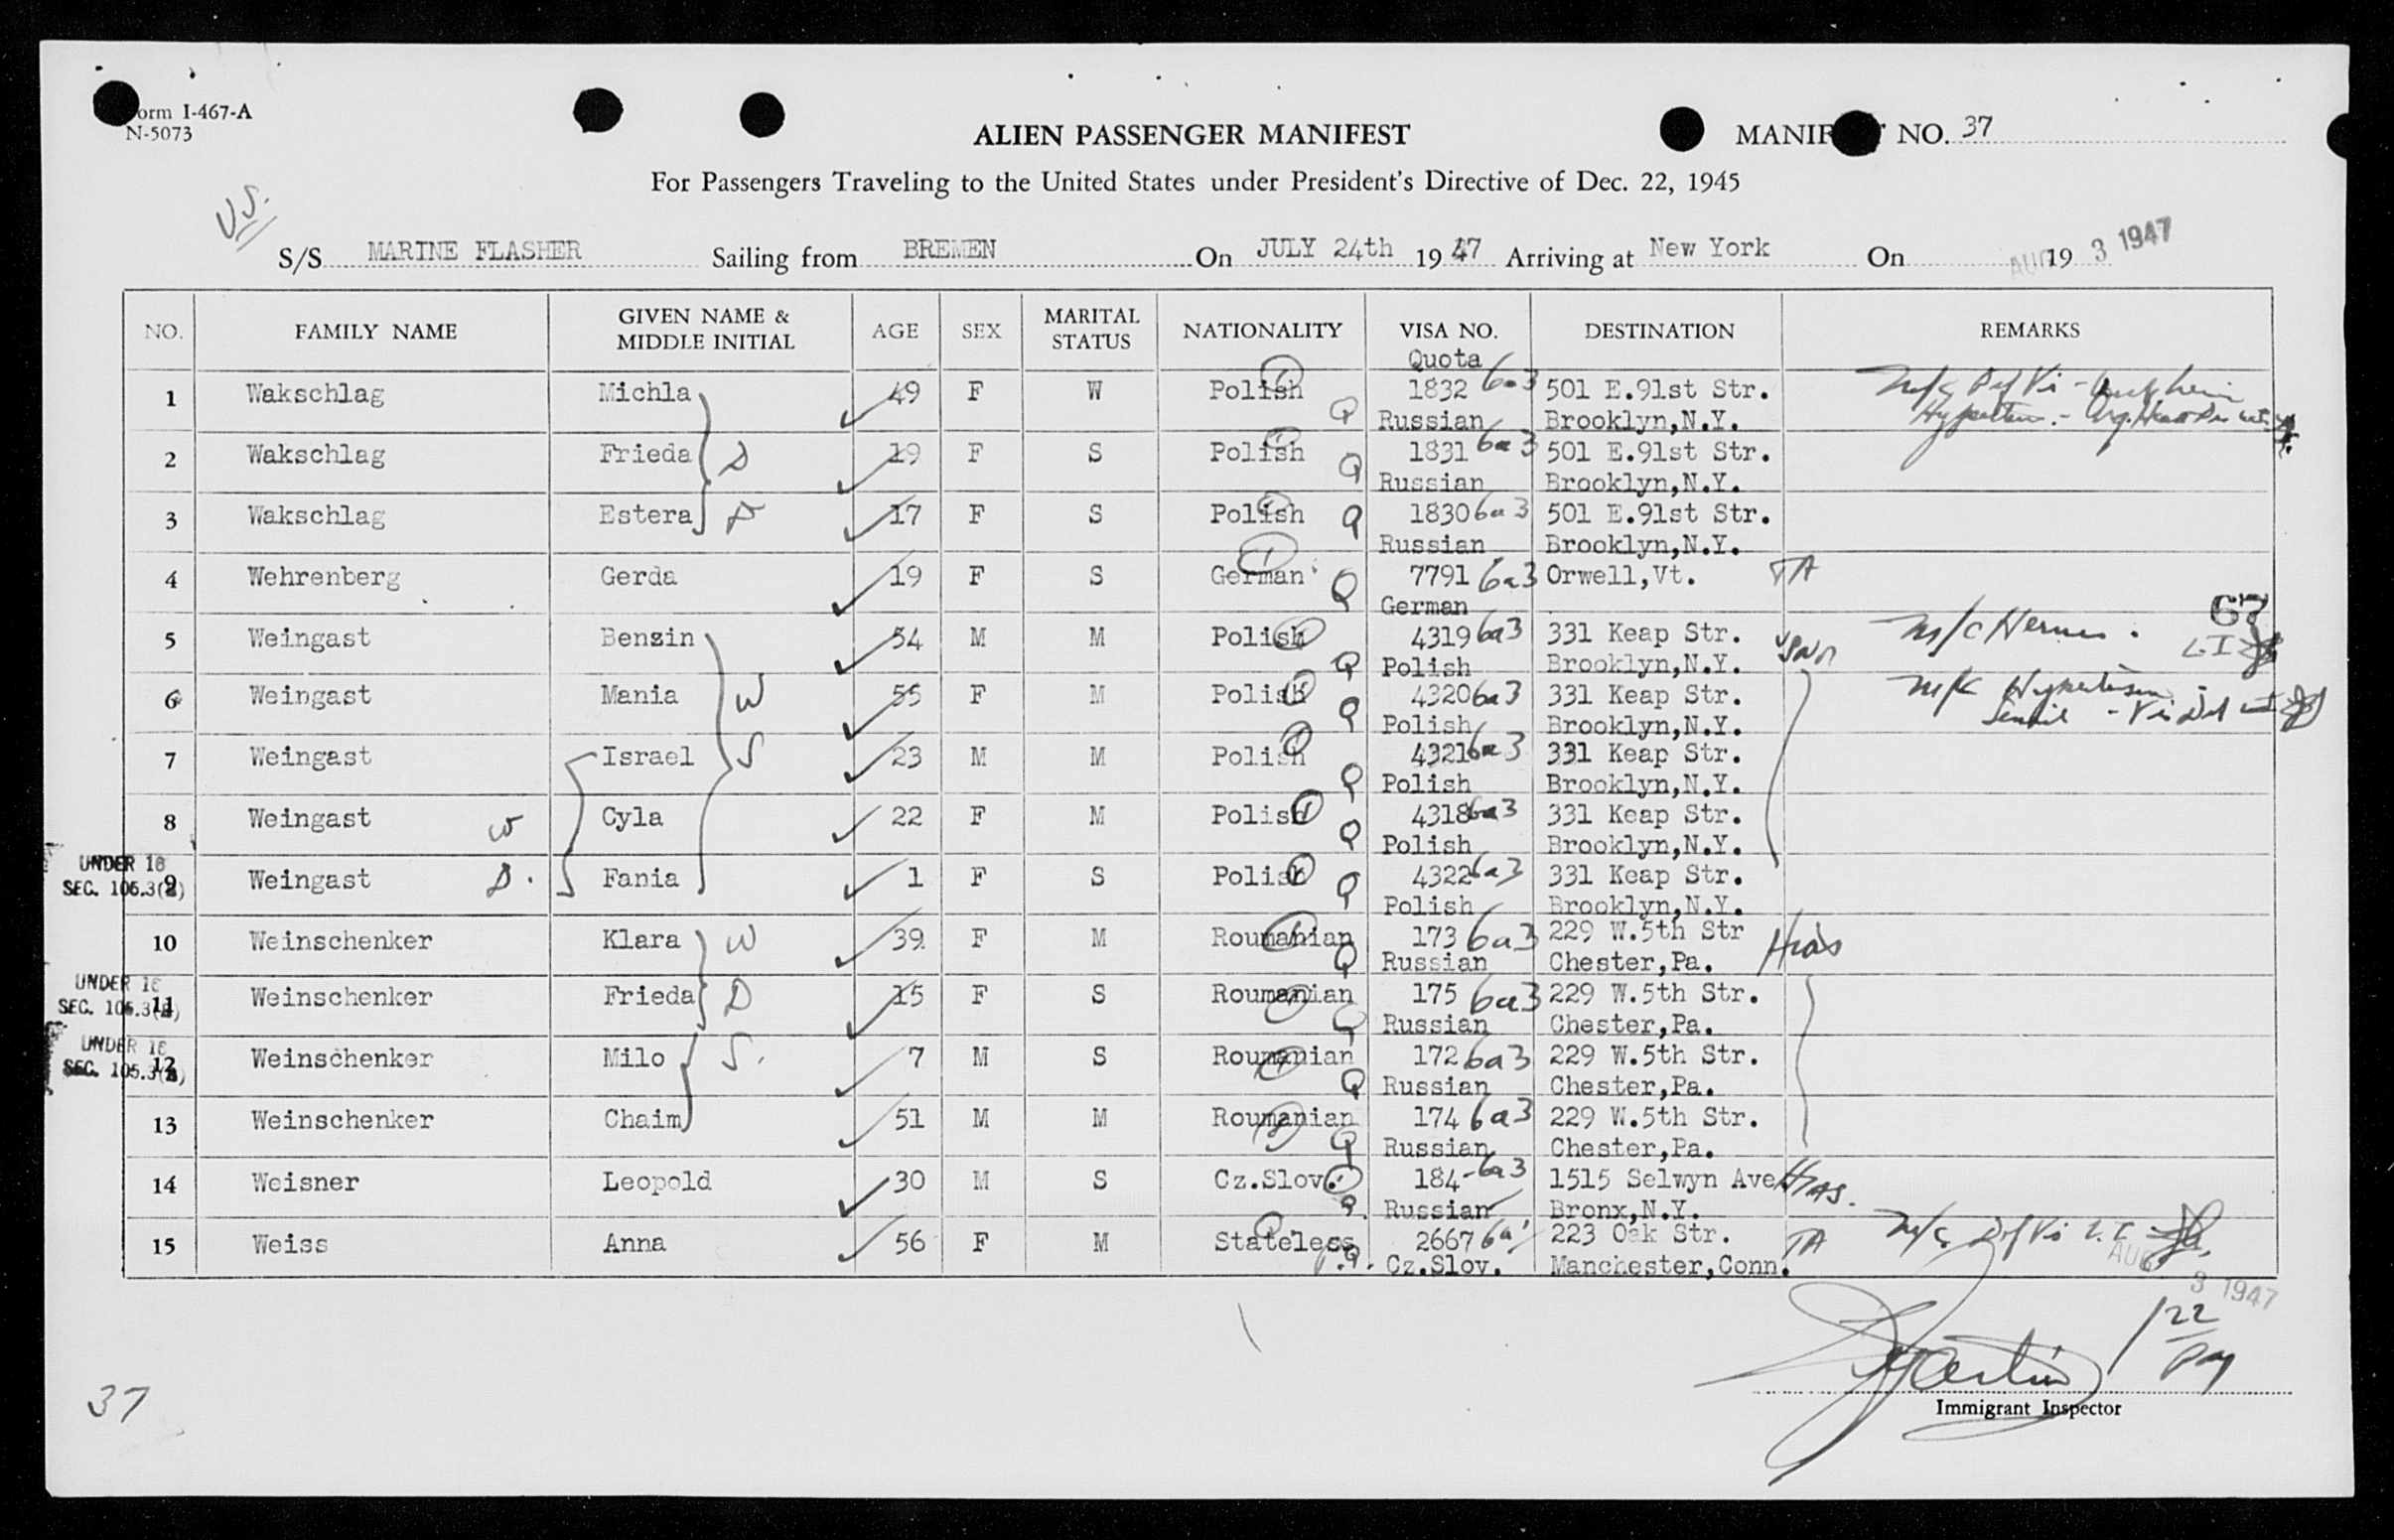 orm I-467-A
N-5073
ALIEN PASSENGER MANIFEST
MANIF NO. 37
For Passengers Traveling to the United States under President's Directive of Dec. 22, 1945
US.
S/S MARINE FLASHER Sailing from BREMEN On JULY 24th 1947 Arriving at New York On AUG 3 1947 19
NO. FAMILY NAME GIVEN NAME & MIDDLE INITIAL AGE SEX MARITAL STATUS NATIONALITY VISA NO. DESTINATION REMARKS
Quota
1 Wakschlag Michla 49 F W Polish 1832 6a3 501 E.91st Str. M/C
Q Russian Brooklyn,N.Y.
2 Wakschlag Frieda D 19 F S Polish 1831 6a3 501 E.91st Str.
Q Russian Brooklyn,N.Y.
3 Wakschlag Estera D 17 F S Polish 1830 6a3 501 E.91st Str.
Q Russian Brooklyn,N.Y.
4 Wehrenberg Gerda 19 F S German 7791 6a3 Orwell,Vt. TA
Q German
67
5 Weingast Benzin 54 M M Polish 4319 6a3 331 Keap Str. M/C Hernia.
Q Polish Brooklyn,N.Y. USNA
6 Weingast Mania W 55 F M Polish 4320 6a3 331 Keap Str. M/C Hypertension
Q Polish Brooklyn,N.Y.
7 Weingast Israel S 23 M M Polish 4321 6a3 331 Keap Str.
Q Polish Brooklyn,N.Y.
8 Weingast W Cyla 22 F M Polish 4318 6a3 331 Keap Str.
Q Polish Brooklyn,N.Y.
UNDER 16
SEC. 105.3(a)
9 Weingast D. Fania 1 F S Polish 4322 6a3 331 Keap Str.
Q Polish Brooklyn,N.Y.
10 Weinschenker Klara W 39 F M Roumanian 173 6a3 229 W.5th Str Hias
Q Russian Chester,Pa.
UNDER 16
SEC. 105.3(a)
11 Weinschenker Frieda D 15 F S Roumanian 175 6a3 229 W.5th Str.
Q Russian Chester,Pa.
UNDER 16
SEC. 105.3(a)
12 Weinschenker Milo S. 7 M S Roumanian 172 6a3 229 W.5th Str.
Q Russian Chester,Pa.
13 Weinschenker Chaim 51 M M Roumanian 174 6a3 229 W.5th Str.
Q Russian Chester,Pa.
14 Weisner Leopold 30 M S Cz.Slov. 184 6a3 1515 Selwyn Ave Hias.
Q Russian Bronx,N.Y.
15 Weiss Anna 56 F M Stateless 2667 6a1 223 Oak Str. TA M/C
P.Q. Cz.Slov. Manchester,Conn.
AUG 3 1947
122
PM
Immigrant Inspector
37